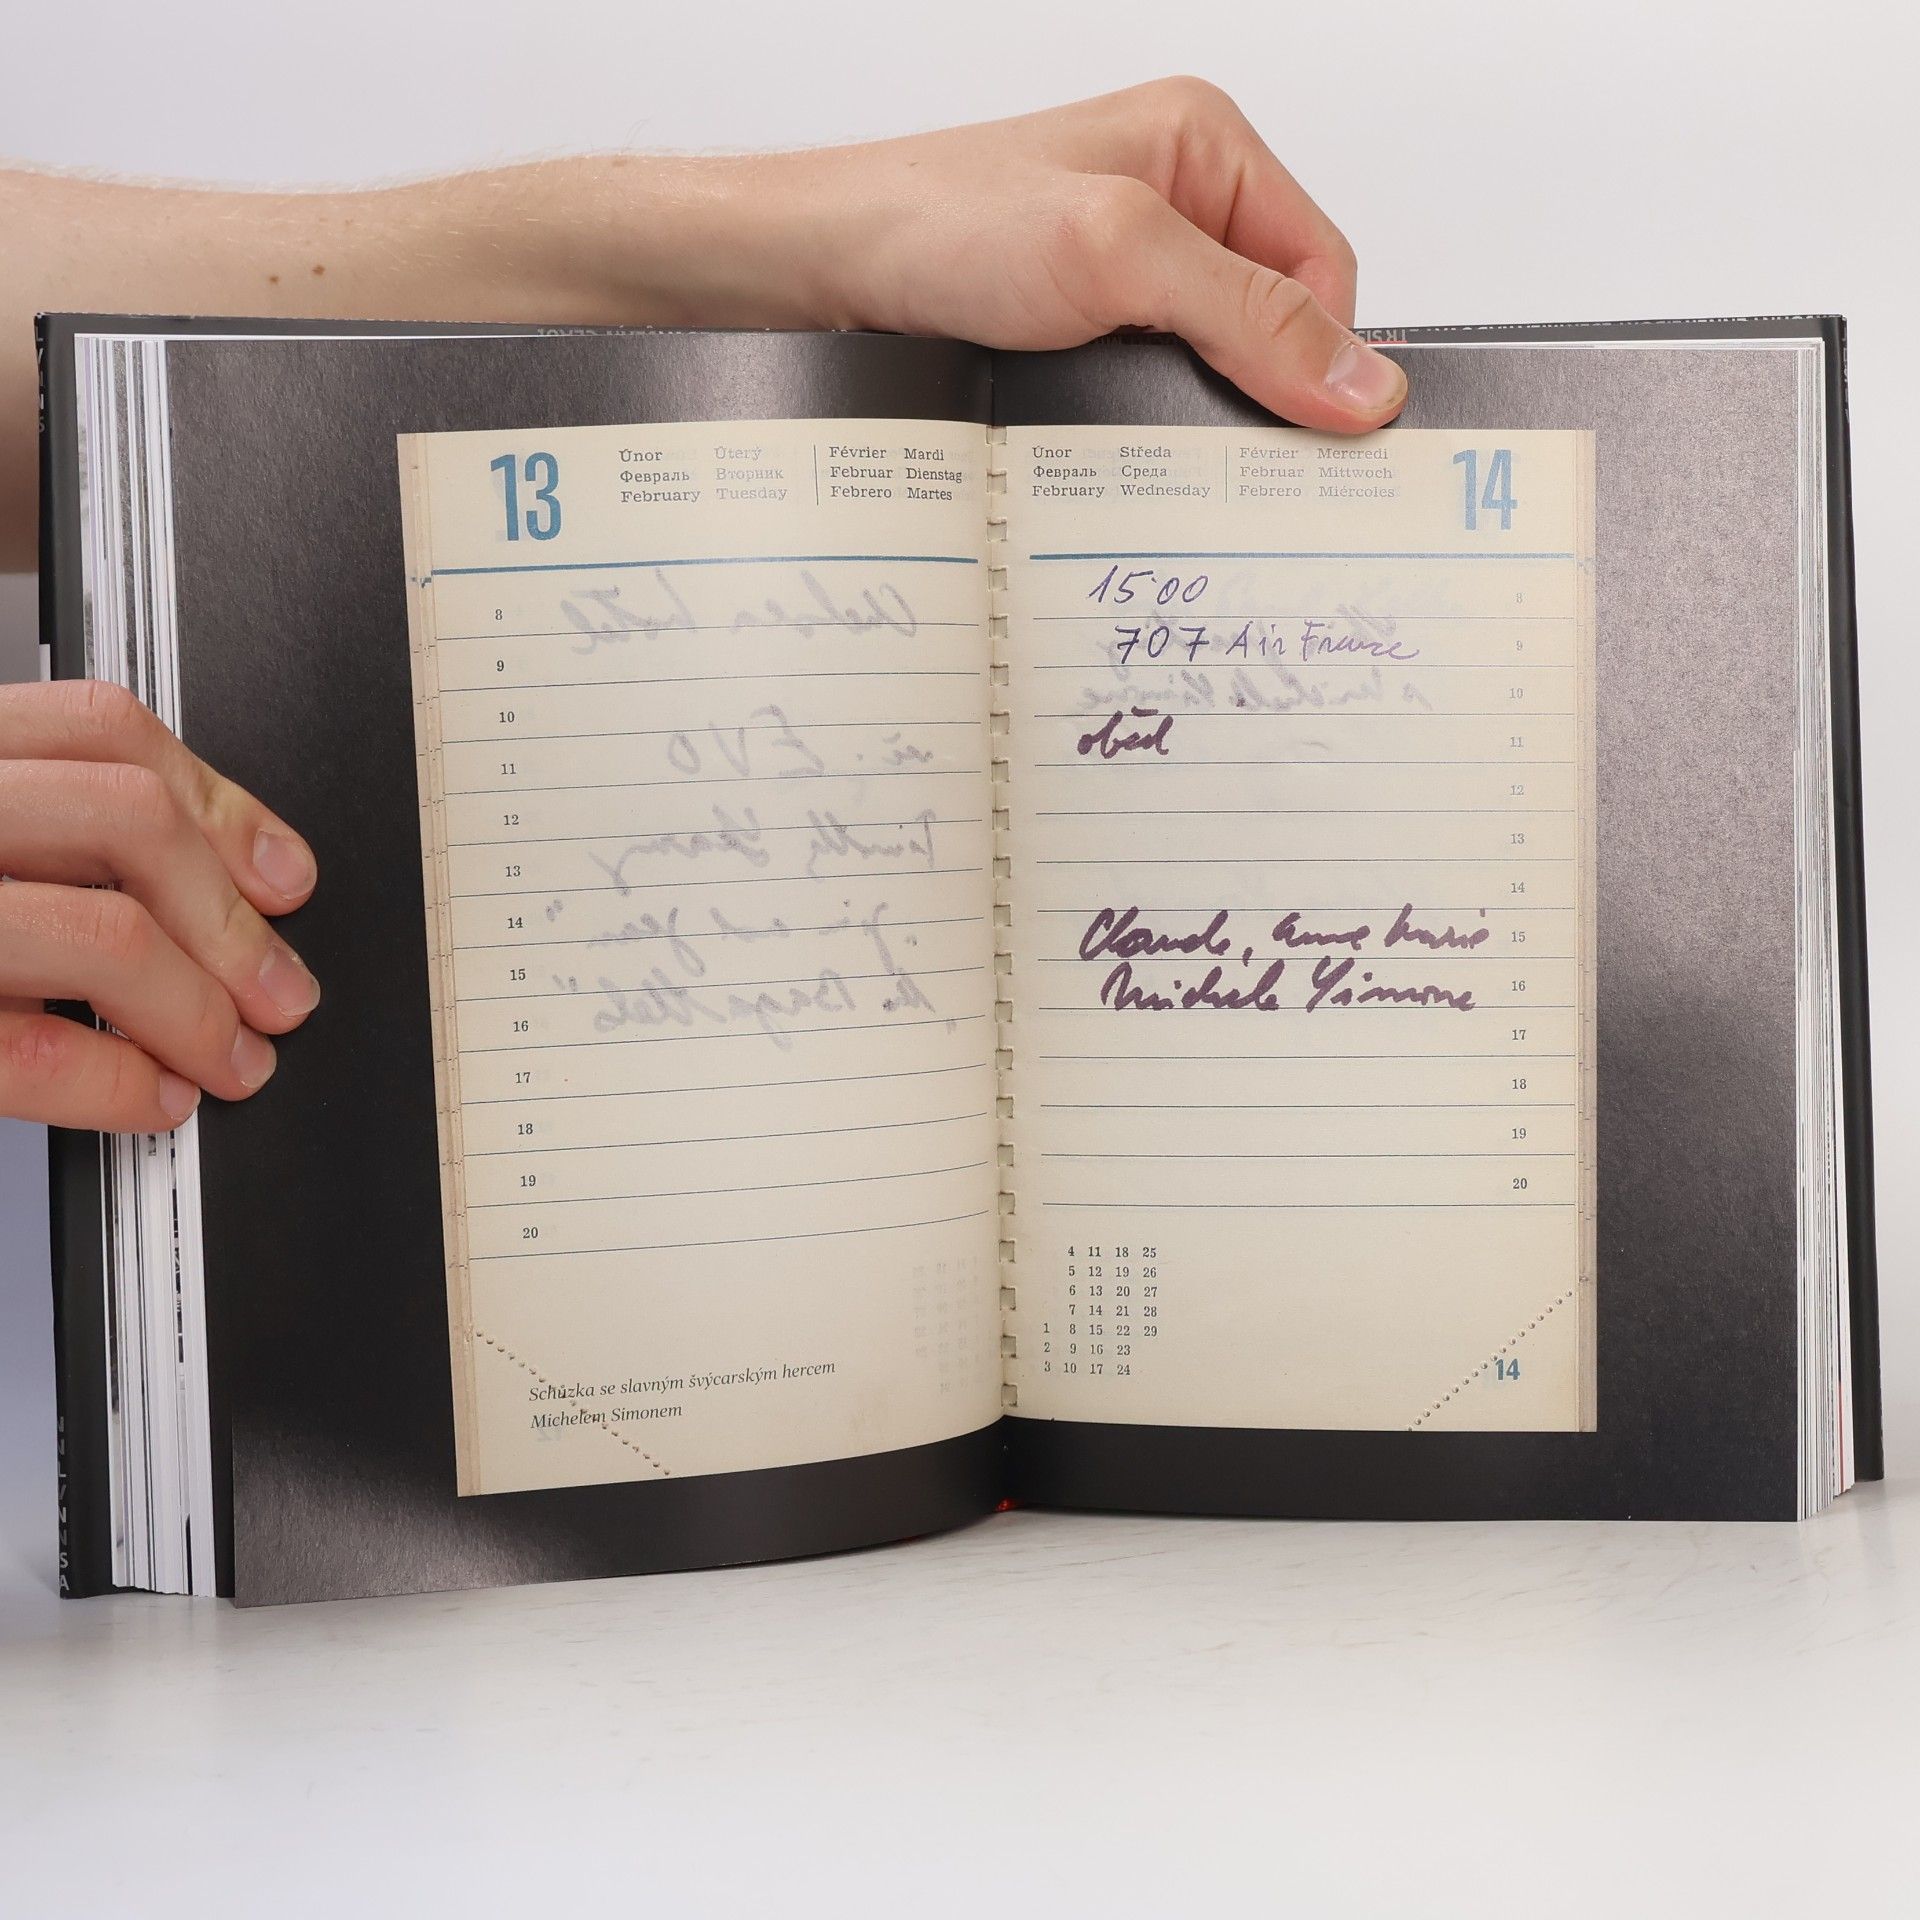 13
Únor Úterý Février Mardi
Февраль Вторник Februar Dienstag
February Tuesday Febrero Martes
8
9
10
11
12
13
14
15
16
17
18
19
20
Schůzka se slavným švýcarským hercem
Michelem Simonem
Únor Středa Février Mercredi
Февраль Среда Februar Mittwoch
February Wednesday Febrero Miércoles
14
15 00
8
707 Air France
9
10
oběd
11
12
13
14
Claude, anne marie
15
Michele Simone
16
17
18
19
20
4 11 18 25
5 12 19 26
6 13 20 27
7 14 21 28
1 8 15 22 29
2 9 16 23
3 10 17 24
14